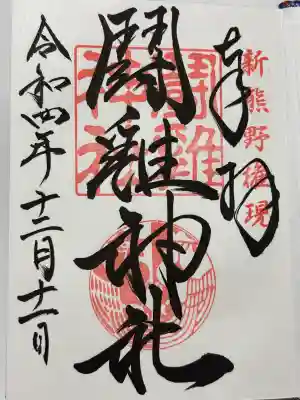 新熊野権現
奉拝
闘雞神社
令和四年十二月十一日